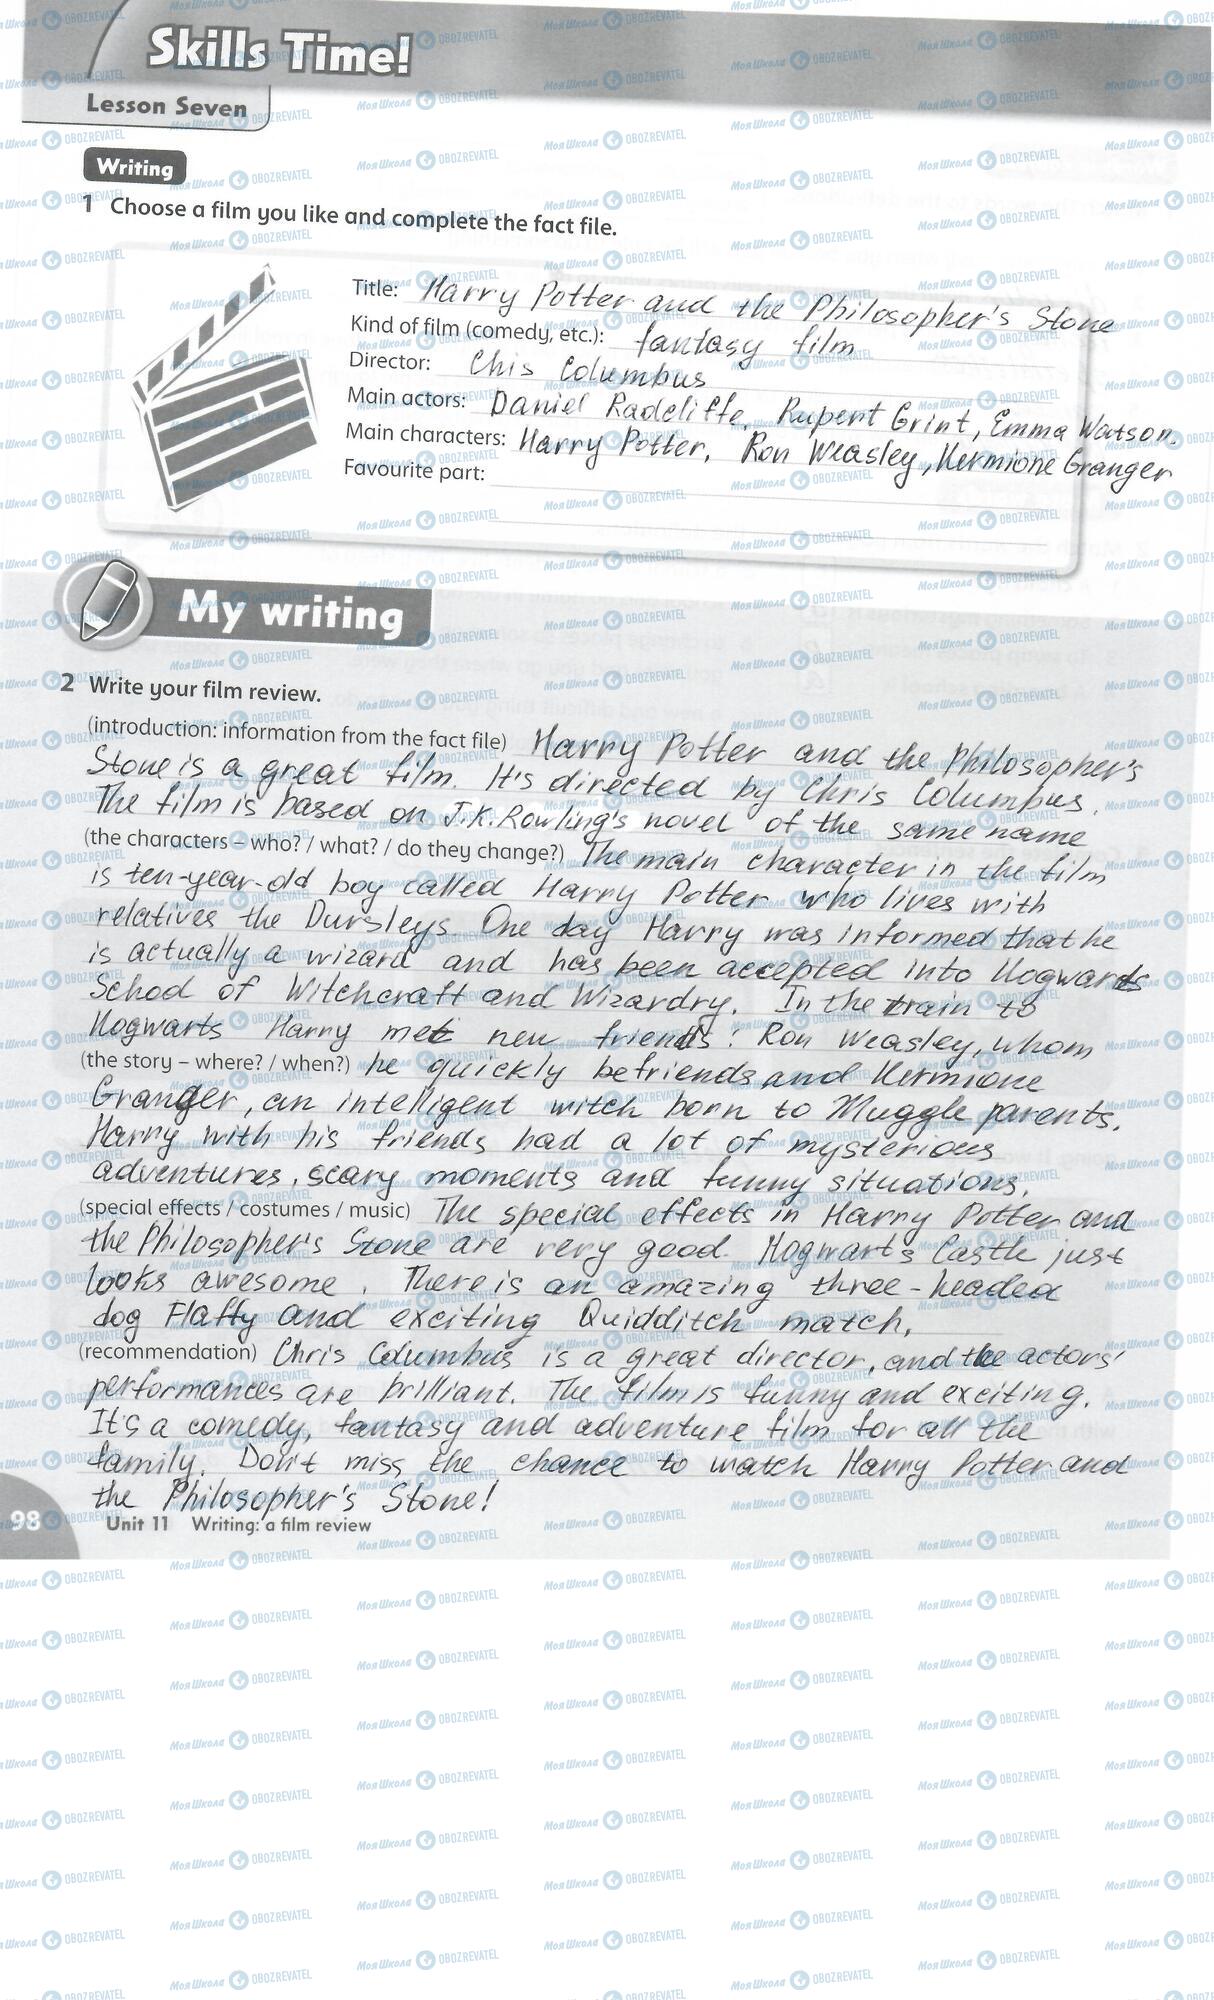 Skills Time!
Lesson Seven
Writing
1 Choose a film you like and complete the fact file.
Title: Harry Potter and the Philosopher's Stone
Kind of film (comedy, etc.): fantasy film
Director: Chis Columbus
Main actors: Daniel Radcliffe, Rupert Grint, Emma Watson.
Main characters: Harry Potter, Ron Weasley, Hermione Granger
Favourite part:
My writing
2 Write your film review.
(introduction: information from the fact file) Harry Potter and the Philosopher's
Stone is a great film. It's directed by Chris Columbus.
The film is based on J.K.Rowling's novel of the same name
(the characters – who? / what? / do they change?) The main character in the film
is ten-year-old boy called Harry Potter who lives with
relatives the Dursleys. One day Harry was informed that he
is actually a wizard and has been accepted into Hogwarts
School of Witchcraft and Wizardry. In the train to
Hogwarts Harry met new friends: Ron Weasley, whom
(the story – where? / when?) he quickly befriends and Hermione
Granger, an intelligent witch born to Muggle parents.
Harry with his friends had a lot of mysterious
adventures, scary moments and funny situations.
(special effects / costumes / music) The special effects in Harry Potter and
the Philosopher's Stone are very good. Hogwarts Castle just
looks awesome. There is an amazing three-headed
dog Flaffy and exciting Quidditch match.
(recommendation) Chris Columbus is a great director, and the actors'
performances are brilliant. The film is funny and exciting.
It's a comedy, fantasy and adventure film for all the
family. Don't miss the chance to watch Harry Potter and
the Philosopher's Stone!
98 Unit 11 Writing: a film review
Моя Школа OBOZREVATEL